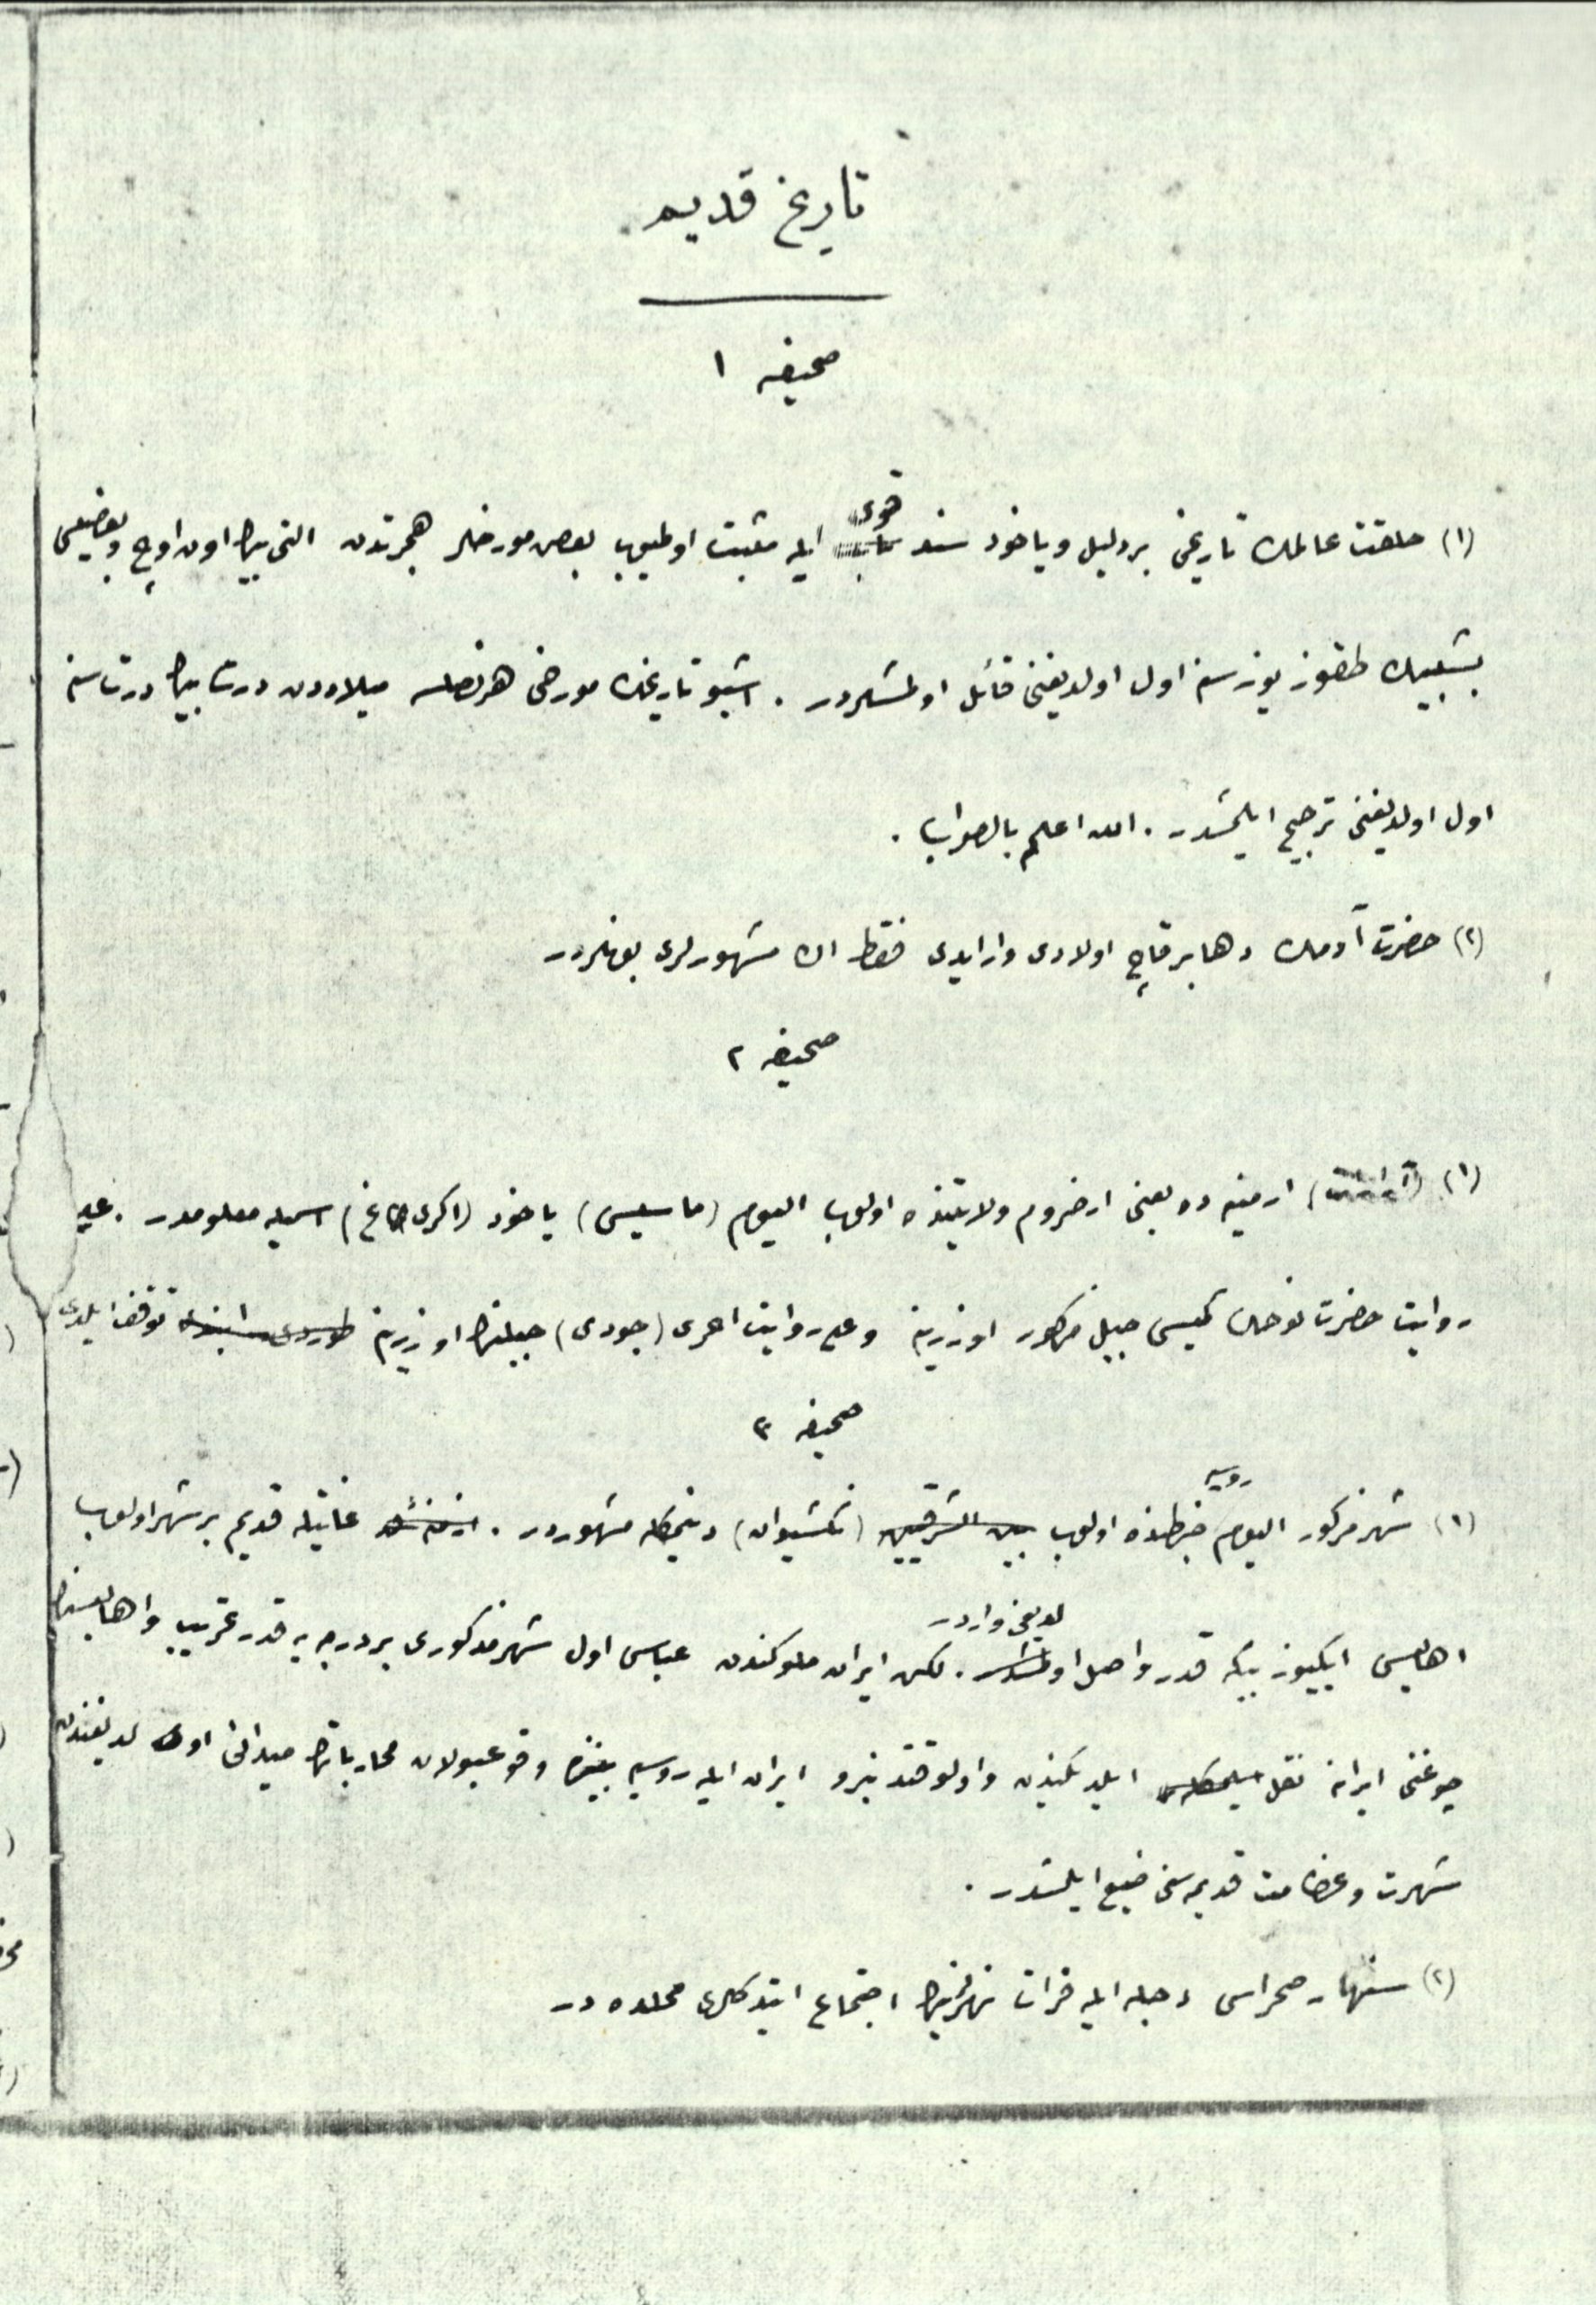 تاریخ قدیم
صحیفه ١
(١) خلقت عالمك تاریخی بر دلیل ویاخود سند قوی ایله مثبت اولمیوب بعض مورخلر هجرتدن التی بیك اون اوچ وبعضیسی
بشبیك طقوز یوز سنه اول اولدیغنی قائل اولمشلردر . اشبو تاریخك مورخی هر نصلسه میلاددن درت بیك درت سنه
اول اولدیغنی ترجیح ایلمشدر . الله اعلم بالصواب .
(٢) حضرت آدمك دها برقاچ اولادی وار ایدی فقط اك مشهورلری بونلردر
صحیفه ٢
(١) ( ) ارمنیه ده یعنی ارضروم ولایتنده اولوب الیوم (ماسیس) یاخود (اكری طاغ) اسمیله معلومدر . علی
روایت حضرت نوحك كمیسی جبل مذكور اوزرینه وعلی روایت اخری (جودی) جبلنك اوزرینه توقف ایلدی
صحیفه ٣
(١) شهر مذكور الیوم روسیه خطه‌سنده اولوب بین الشرقیین (نخشیوان) دیمكله مشهوردر . غایتله قدیم بر شهر اولوب
اهالیسی ایكیوز بیكه قدر واصل اولدیغی واردر . لكن ایران ملوكندن عباس اول شهر مذكوری بر درجه یه قدر تخریب واهالیسنك
چوغنی ایرانه نقل ایلدیكندن واولوقتدنبرو ایران ایله روسیه بیننده وقوعبولان محارباتك میدانی اولدیغندن
شهرت وعظامت قدیمه سنی ضیع ایلمشدر .
(٢) سنهار صحراسی دجله ایله فرات نهرلرینك اجتماع ایتدكلری محلده در